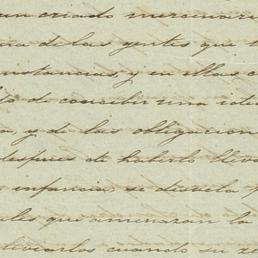 un criado mercenario
de las gentes que
instancias, y en ellas
de concebir una idea
y de las obligacion
despues de haberlo lleva
infancia se desvela
que amenazan la
cuando su